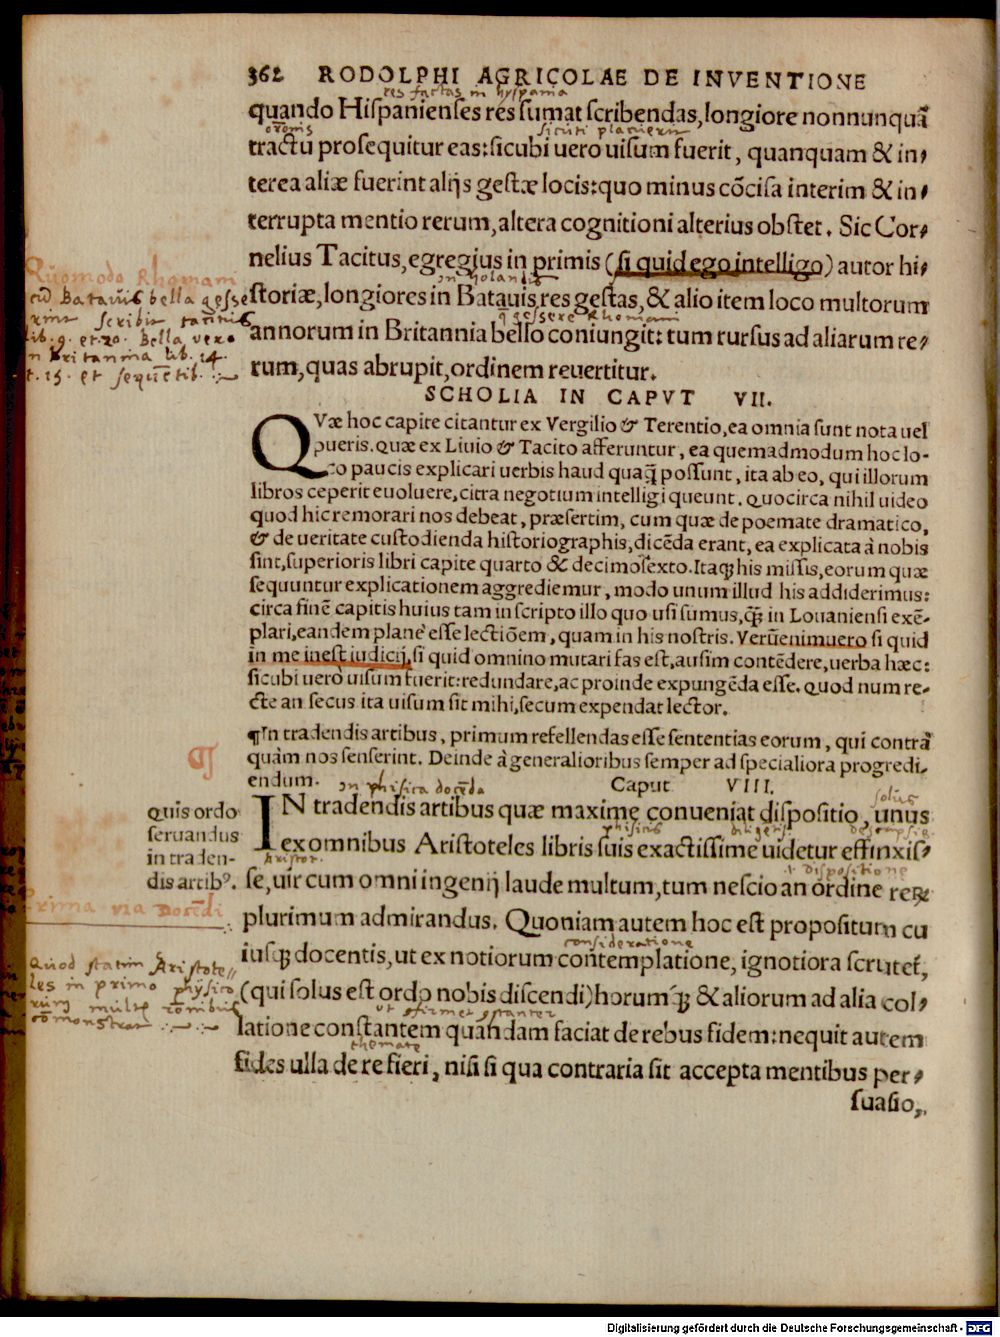 362 RODOLPHI AGRICOLAE DE INVENTIONE
res factas in hyspania
quando Hispanienses res sumat scribendas, longiore nonnunquã
sicuti planieru
tractu prosequitur eas: sicubi uero uisum fuerit, quanquam & in,
terea aliæ fuerint alijs gestæ locis: quo minus cõcisa interim & in,
terrupta mentio rerum, altera cognitioni alterius obstet. Sic Cor,
nelius Tacitus, egregius in primis (si quid ego intelligo) autor hi,
in holandis
storiæ, longiores in Batauis res gestas, & alio item loco multorum
q̃ gessere Rhomani
annorum in Britannia bello coniungit: tum rursus ad aliarum re,
rum, quas abrupit, ordinem reuertitur.
Quomodo Rhomani
cũ Batavis bella gesse
rint scribit tacitus
lib. 9. et 20. Bella vero
n Britannia lib. 14.
t. 15. et sequẽtib.
SCHOLIA IN CAPVT VII.
QVæ hoc capite citantur ex Vergilio & Terentio, ea omnia sunt nota uel
pueris. Quæ ex Liuio & Tacito afferuntur, ea quemadmodum hoc lo-
co paucis explicari uerbis haud quaq̃ possunt, ita ab eo, qui illorum
libros ceperit euoluere, citra negotium intelligi queunt. Quocirca nihil uideo
quod hic remorari nos debeat, præsertim, cum quæ de poemate dramatico,
& de ueritate custodienda historiographis, dicẽda erant, ea explicata à nobis
sint, superioris libri capite quarto & decimosexto. Itaq; his missis, eorum quæ
sequuntur explicationem aggrediemur, modo unum illud his addiderimus:
circa finẽ capitis huius tam in scripto illo quo usi sumus, q̃; in Louaniensi exẽ-
plari, eandem planè esse lectiõem, quam in his nostris. Verũenimuero si quid
in me inest iudicij, si quid omnino mutari fas est, ausim contẽdere, uerba hæc:
sicubi uero uisum fuerit: redundare, ac proinde expungẽda esse. Quod num re-
cte an secus ita uisum sit mihi, secum expendat lector.
¶ In tradendis artibus, primum refellendas esse sententias eorum, qui contrà
quàm nos senserint. Deinde à generalioribus semper ad specialiora progredi-
endum. Caput VIII.
in phisica docẽda
solus
IN tradendis artibus quæ maxime conueniat dispositio, unus
phisicis diligens.
ex omnibus Aristoteles libris suis exactissime uidetur effinxis,
Aristot. dispositione
se, uir cum omni ingenij laude multum, tum nescio an ordine reꝝ
plurimum admirandus. Quoniam autem hoc est propositum cu
consideratione
iusq; docentis, ut ex notioribus contemplatione, ignotiora scrutet̃,
(qui solus est ordo nobis discendi) horumq̃; & aliorum ad alia col,
latione constantem quandam faciat de rebus fidem: nequit autem
themate
fides ulla de re fieri, nisi si qua contraria sit accepta mentibus per,
suasio,
Quis ordo
seruandus
in traden-
dis artibꝰ.
Prima via Docẽdi
Quod statim Aristote
les in primo physico
rum multis rõnibus
cõmonstrat